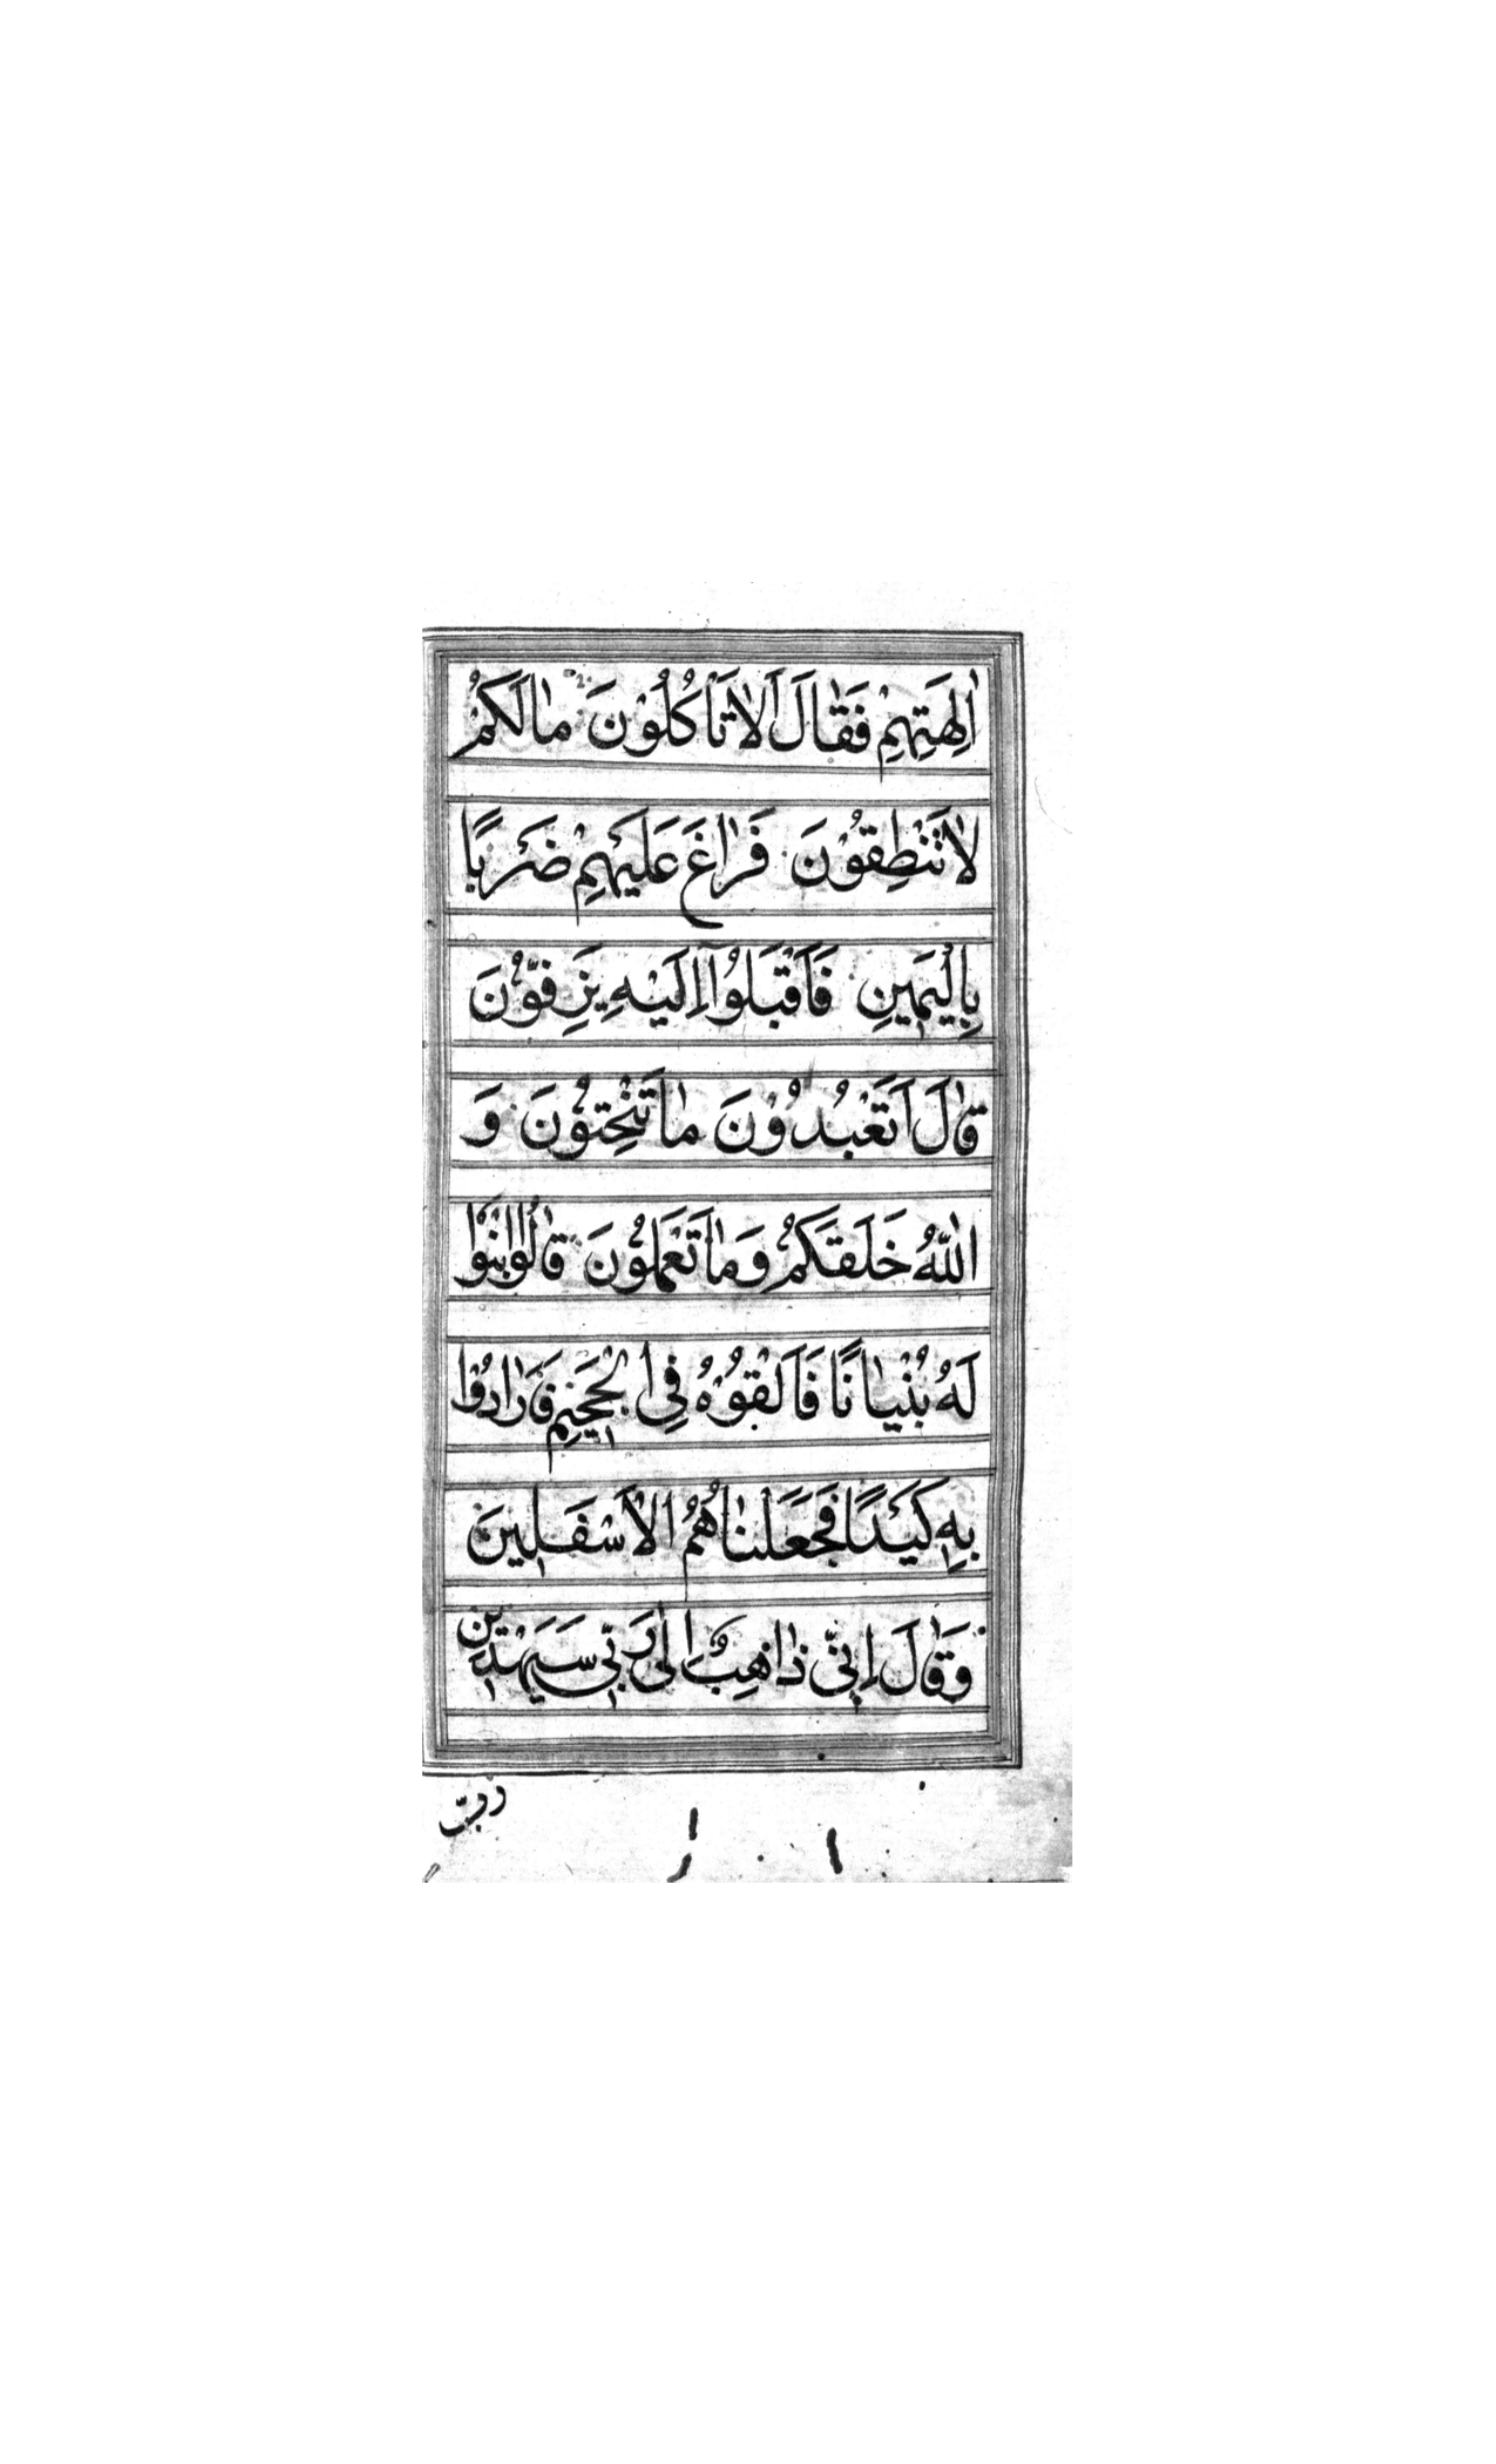 اٰلِهَتِهِمْ فَقٰالَ اَلاٰ تَأْكُلُوْنَ مٰالَكُمْ
لاٰ تَنْطِقُوْنَ فَرٰاغَ عَلَيْهِمْ ضَرْبًا
بِالْيَمٖينِ فَاَقْبَلُوْآ اِلَيْهِ يَزِفُّوْنَ
قٰالَ اَتَعْبُدُوْنَ مٰا تَنْحِتُوْنَ وَ
اللّٰهُ خَلَقَكُمْ وَمٰا تَعْمَلُوْنَ قٰالُوا ابْنُوْا
لَهُ بُنْيٰانًا فَاَلْقُوْهُ فِي الْجَحٖيْمِ فَاَرٰادُوْا
بِهٖ كَيْدًا فَجَعَلْنٰاهُمُ الْاَسْفَلٖينَ
وَقٰالَ اِنّٖى ذٰاهِبٌ اِلٰى رَبّٖى سَيَهْدٖينِ
ربّ